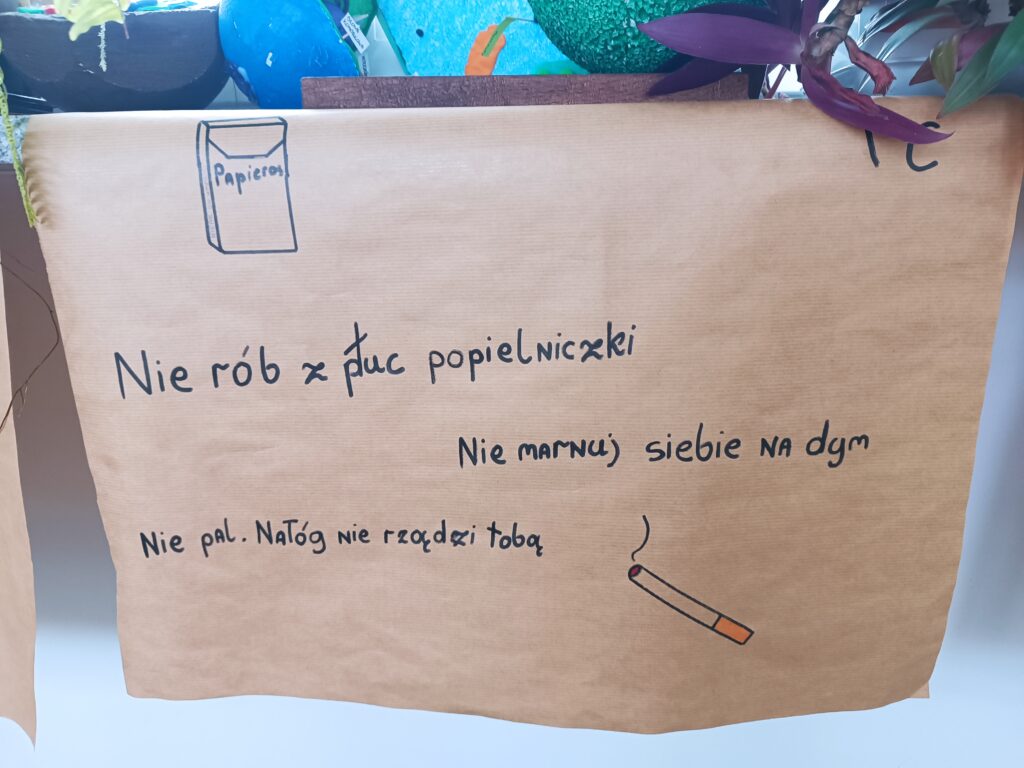 Papieros
1 c
Nie rób z płuc popielniczki
Nie marnuj siebie na dym
Nie pal. Nałóg nie rządzi tobą